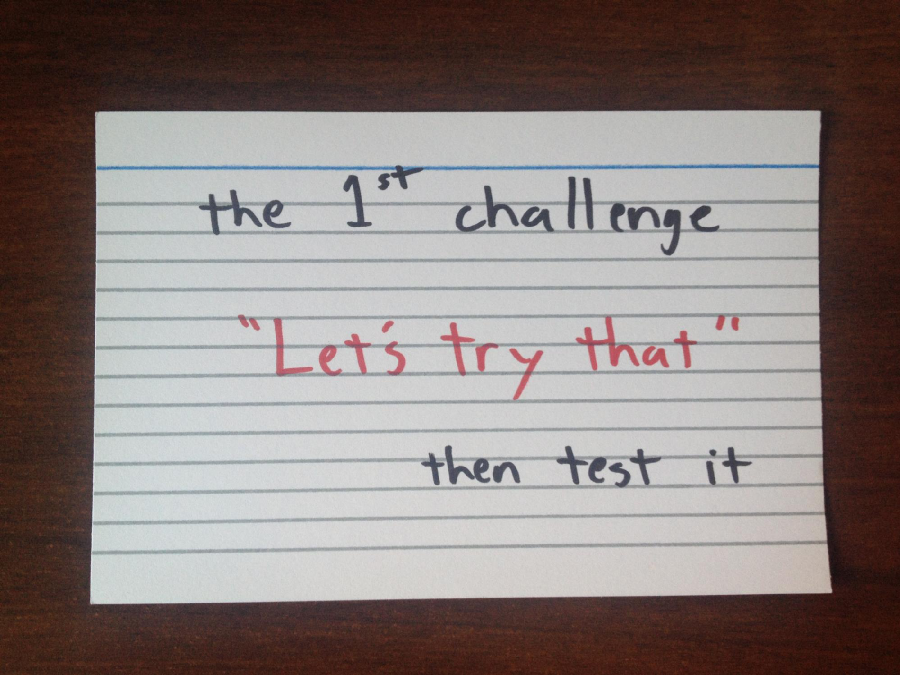 the 1st challenge
"Let's try that"
then test it